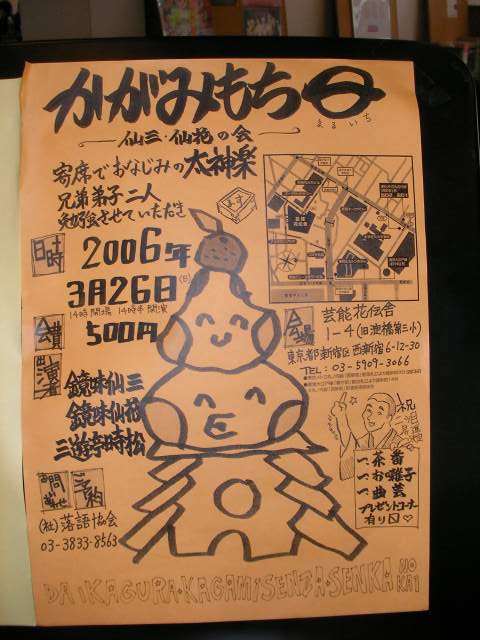 かがみもち
まるいち
仙三・仙花の会
寄席でおなじみの太神楽
兄弟弟子二人
勉強会させていただき
ます
日時
2006年
3月26日(日)
14時開場 14時半開演
会費
500円
出演者
鏡味仙三
鏡味仙花
三遊亭時松
お問い合わせ
ご予約
(社)落語協会
03-3833-8563
会場
芸能花伝舎
1-4(旧淀橋第三小)
東京都新宿区西新宿6-12-30
TEL:03-5909-3066
祝
一、茶番
一、お囃子
一、曲芸
プレゼントコーナー
有り〼♡
DAIKAGURA・KAGAMI SENZA・SENKA
NO
KAI